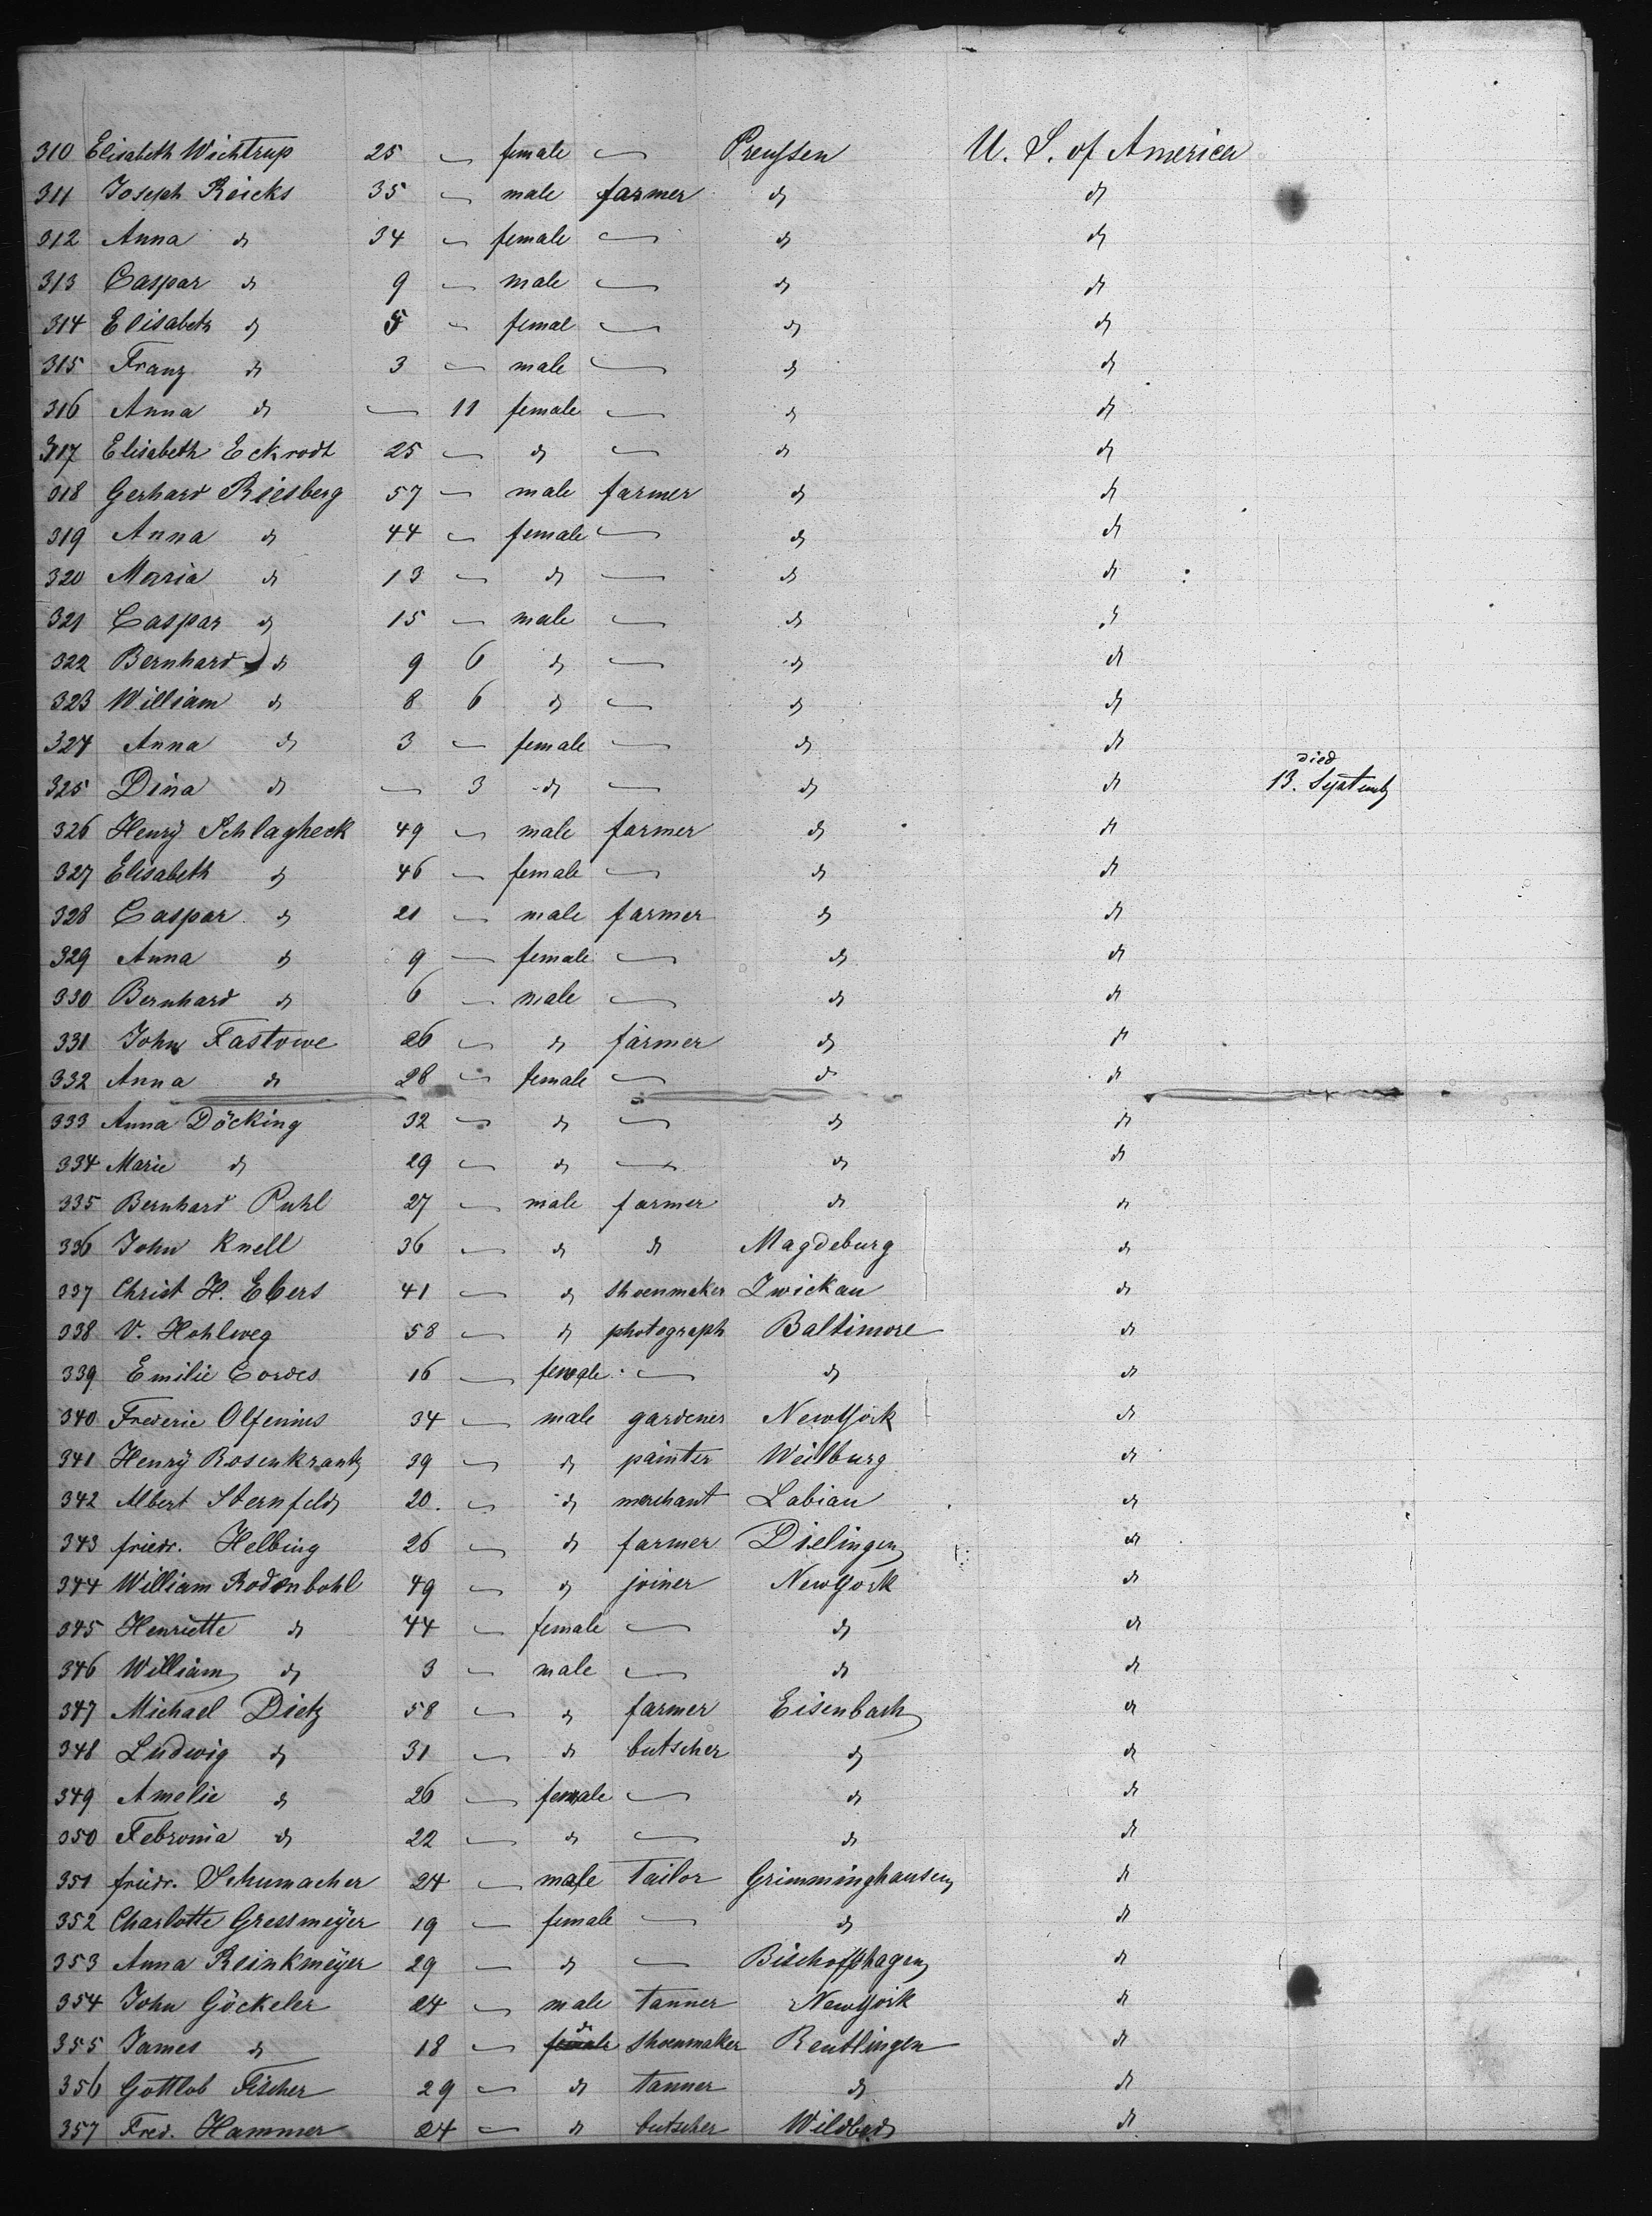 310 Elisabeth Wichtrup 25 — female — Preussen U. S. of America
311 Joseph Reicks 35 — male farmer do do
312 Anna do 34 — female — do do
313 Caspar do 9 — male — do do
314 Elisabeth do 5 — femal — do do
315 Franz do 3 — male — do do
316 Anna do — 11 female — do do
317 Elisabeth Eckrodt 25 — do — do do
318 Gerhard Riesberg 57 — male farmer do do
319 Anna do 44 — female — do do
320 Maria do 13 — do — do do
321 Caspar do 15 — male — do do
322 Bernhard do 9 6 do — do do
323 William do 8 6 do — do do
324 Anna do 3 — female — do do
died
325 Dina do — 3 do — do do 13. Septemb
326 Henry Schlagheck 49 — male farmer do do
327 Elisabeth do 46 — female — do do
328 Caspar do 21 — male farmer do do
329 Anna do 9 — female — do do
330 Bernhard do 6 — male — do do
331 John Fastowe 26 — do farmer do do
332 Anna do 28 — female — do do
333 Anna Döcking 32 — do — do do
334 Marie do 29 — do — do do
335 Bernhard Puhl 27 — male farmer do do
336 John Knell 36 — do do Magdeburg do
337 Christ H. Ebers 41 — do shoenmaker Zwickau do
338 V. Hohlweg 58 — do photograph Baltimore do
339 Emilie Cordes 16 — female — do do
340 Frederic Olfenius 34 — male gardener NewYork do
341 Henry Rosenkrantz 39 — do painter Weilburg do
342 Albert Sternfeld 20. — do merchant Labiau do
343 friedr. Helbing 26 — do farmer Dielingen do
344 William Rodenbohl 49 — do joiner NewYork do
345 Henriette do 44 — female — do do
346 William do 3 — male — do do
347 Michael Dietz 58 — do farmer Eisenbach do
348 Ludwig do 31 — do butscher do do
349 Amelie do 26 — female — do do
350 Febronia do 22 — do — do do
351 friedr. Schumacher 24 — male Tailor Grimminghausen do
352 Charlotte Gressmeyer 19 — female — do do
353 Anna Reinkmeyer 29 — do — Bischoffshagen do
354 John Göckeler 24 — male tanner NewYork do
355 James do 18 — do shoenmaker Reutlingen do
356 Gottlob Fischer 29 — do tanner do do
357 Fred. Hammer 24 — do butscher Wildbad do